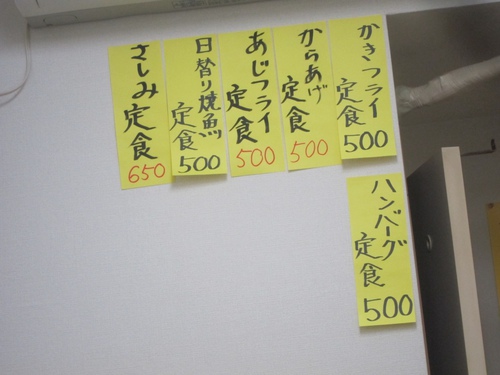 かきフライ定食 500
からあげ定食 500
あじフライ定食 500
日替り焼魚定食 500
さしみ定食 650
ハンバーグ定食 500